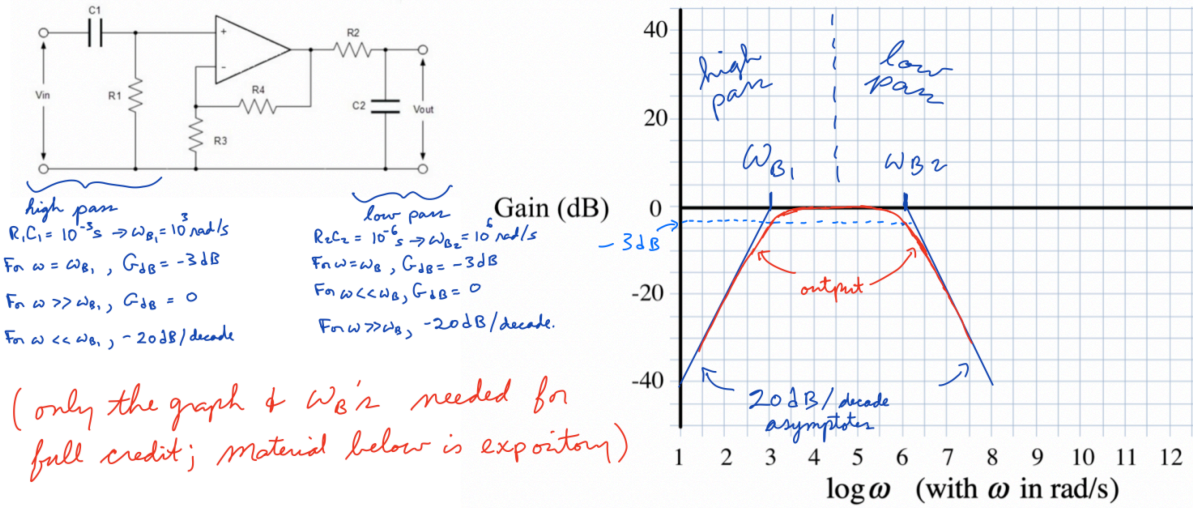 C1
+
-
R2
Vin
R1
R4
C2
Vout
R3
high pass
R₁C₁ = 10⁻³s → ω_B₁ = 10³ rad/s
For ω = ω_B₁, G_dB = -3dB
For ω >> ω_B₁, G_dB = 0
For ω << ω_B₁, -20dB/decade
low pass
R₂C₂ = 10⁻⁶s → ω_B₂ = 10⁶ rad/s
For ω = ω_B, G_dB = -3dB
For ω << ω_B, G_dB = 0
For ω >> ω_B, -20dB/decade.
(only the graph & ω_B's needed for
full credit; material below is expository)
Gain (dB)
40
20
0
-3dB
-20
-40
high
pass
low
pass
ω_B₁
ω_B₂
output
20dB/decade
asymptotes
1 2 3 4 5 6 7 8 9 10 11 12
log ω (with ω in rad/s)